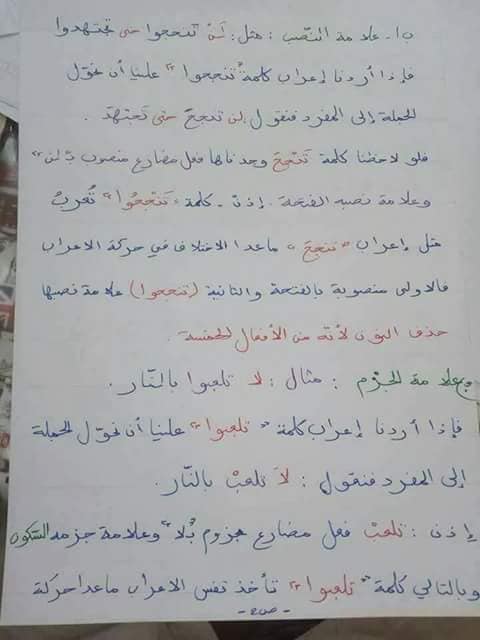 ب١- علامة النصب : مثل : لن تنجحوا حتى تجتهدوا
فإذا أردنا إعراب كلمة "تنجحوا" علينا أن نحوّل
الجملة إلى المفرد فنقول لن تنجحَ حتى تجتهدَ .
فلو لاحظنا كلمة تنجحَ وجدناها فعل مضارع منصوب بـ "لن"
وعلامة نصبه الفتحة . إذن - كلمة "تَنْجَحُوا" تُعربُ
مثل إعراب "تنجحَ" ماعدا الاختلاف في حركة الاعراب
فالاولى منصوبة بالفتحة والثانية (تنجحوا) علامة نصبها
حذف النون لأنه من الأفعال الخمسة .
علامة الجزم : مثال : لا تلعبوا بالنّار .
فإذا أردنا إعراب كلمة "تلعبوا" علينا أن نحوّل الجملة
إلى المفرد فنقول : لاَ تلعبْ بالنّار .
إذن : تلعبْ فعل مضارع مجزوم بـ "لا" وعلامة جزمه السّكون
وبالتالي كلمة "تلعبوا" تأخذ نفس الاعراب ماعدا حركة